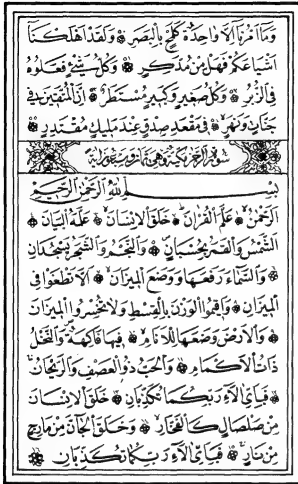 وَمَا أَمْرُنَا إِلَّا وَاحِدَةٌ كَلَمْحٍ بِالْبَصَرِ ۞ وَلَقَدْ أَهْلَكْنَا
أَشْيَاعَكُمْ فَهَلْ مِنْ مُدَّكِرٍ ۞ وَكُلُّ شَيْءٍ فَعَلُوهُ
فِي الزُّبُرِ ۞ وَكُلُّ صَغِيرٍ وَكَبِيرٍ مُسْتَطَرٌ ۞ إِنَّ الْمُتَّقِينَ فِي
جَنَّاتٍ وَنَهَرٍ ۞ فِي مَقْعَدِ صِدْقٍ عِنْدَ مَلِيكٍ مُقْتَدِرٍ ۞
سُورَةُ الرَّحْمَنِ مَكِّيَّةٌ وَهِيَ ثَمَانٌ وَسَبْعُونَ آيَةً
بِسْمِ اللَّهِ الرَّحْمَنِ الرَّحِيمِ
الرَّحْمَنُ ۞ عَلَّمَ الْقُرْآنَ ۞ خَلَقَ الْإِنْسَانَ ۞ عَلَّمَهُ الْبَيَانَ ۞
الشَّمْسُ وَالْقَمَرُ بِحُسْبَانٍ ۞ وَالنَّجْمُ وَالشَّجَرُ يَسْجُدَانِ
۞ وَالسَّمَاءَ رَفَعَهَا وَوَضَعَ الْمِيزَانَ ۞ أَلَّا تَطْغَوْا فِي
الْمِيزَانِ ۞ وَأَقِيمُوا الْوَزْنَ بِالْقِسْطِ وَلَا تُخْسِرُوا الْمِيزَانَ
۞ وَالْأَرْضَ وَضَعَهَا لِلْأَنَامِ ۞ فِيهَا فَاكِهَةٌ وَالنَّخْلُ
ذَاتُ الْأَكْمَامِ ۞ وَالْحَبُّ ذُو الْعَصْفِ وَالرَّيْحَانُ
۞ فَبِأَيِّ آلَاءِ رَبِّكُمَا تُكَذِّبَانِ ۞ خَلَقَ الْإِنْسَانَ
مِنْ صَلْصَالٍ كَالْفَخَّارِ ۞ وَخَلَقَ الْجَانَّ مِنْ مَارِجٍ
مِنْ نَارٍ ۞ فَبِأَيِّ آلَاءِ رَبِّكُمَا تُكَذِّبَانِ ۞